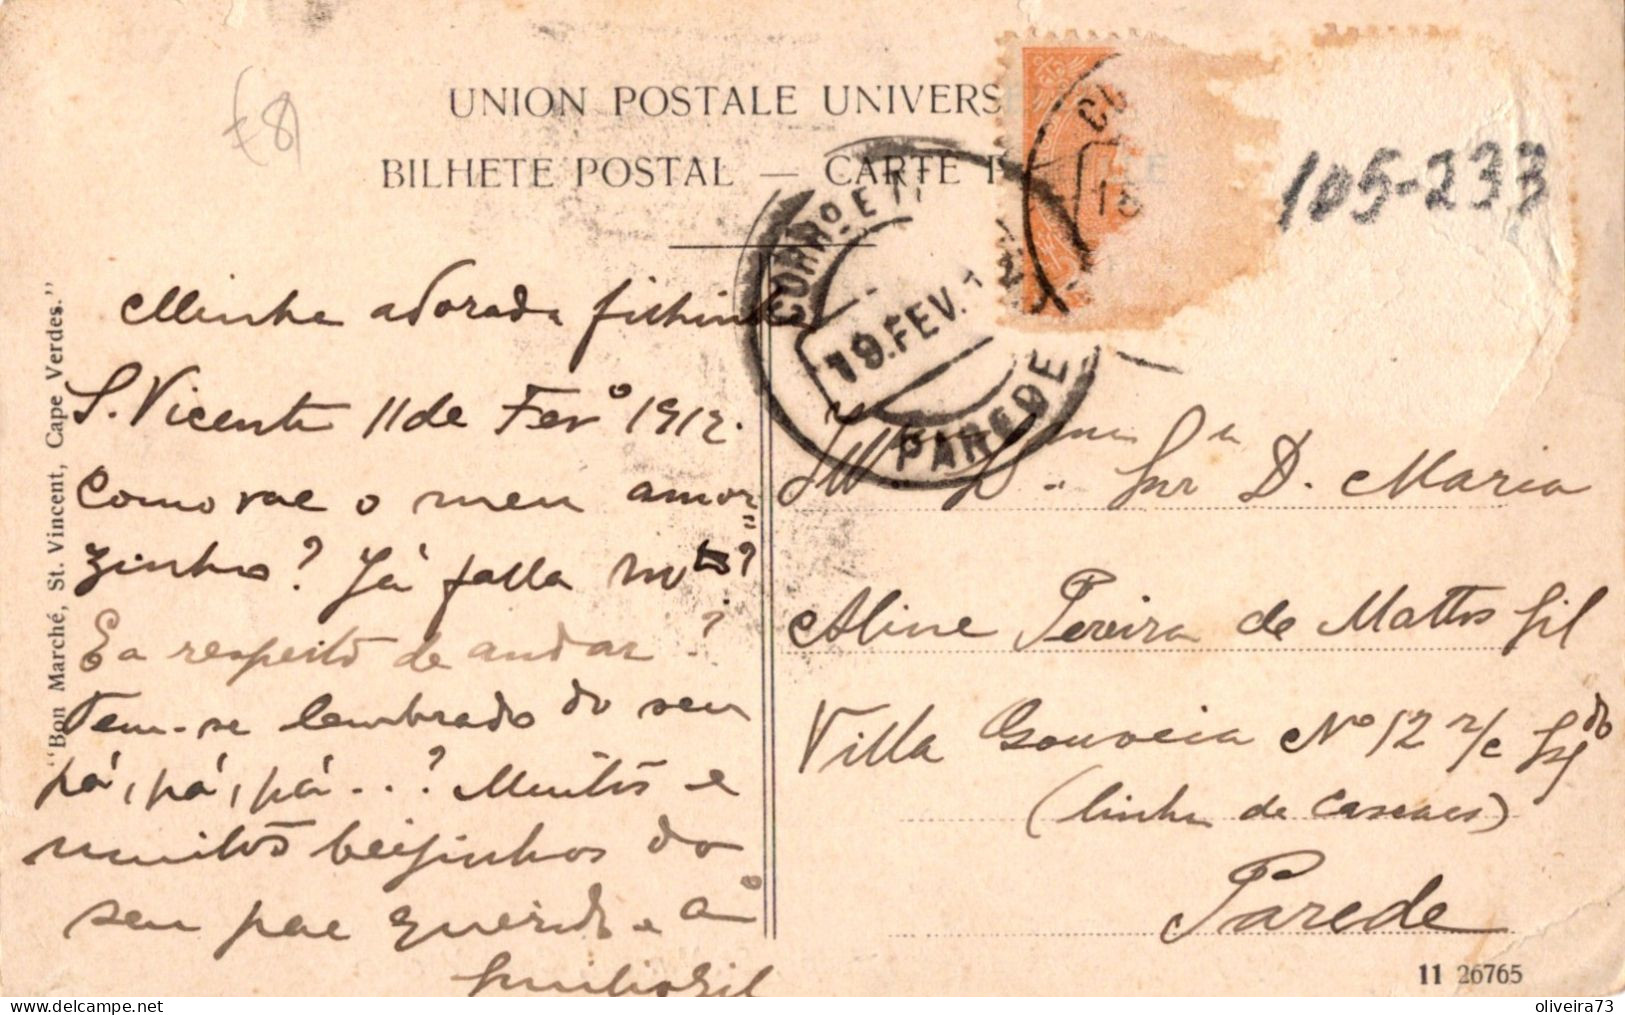 £8
UNION POSTALE UNIVERSE
BILHETE POSTAL — CARTE P
105-233
CORRº E
19.FEV.1
PAREDE
"Bon Marché, St. Vincent, Cape Verdes."
Minha adorada filhinha
S. Vicente 11 de Fevº 1912.
Como vae o meu amor
zinho? Já falla mtº?
E a respeito de andar?
Tem-se lembrado do seu
pá, pá, pá...? Muitos e
muitos beijinhos do
seu pae querido e amº
Gil
D. Maria
Aline Pereira de Mattos Gil
Villa Gouveia Nº 12 r/c
(linha de Cascaes)
Parede
11 26765
oliveira73